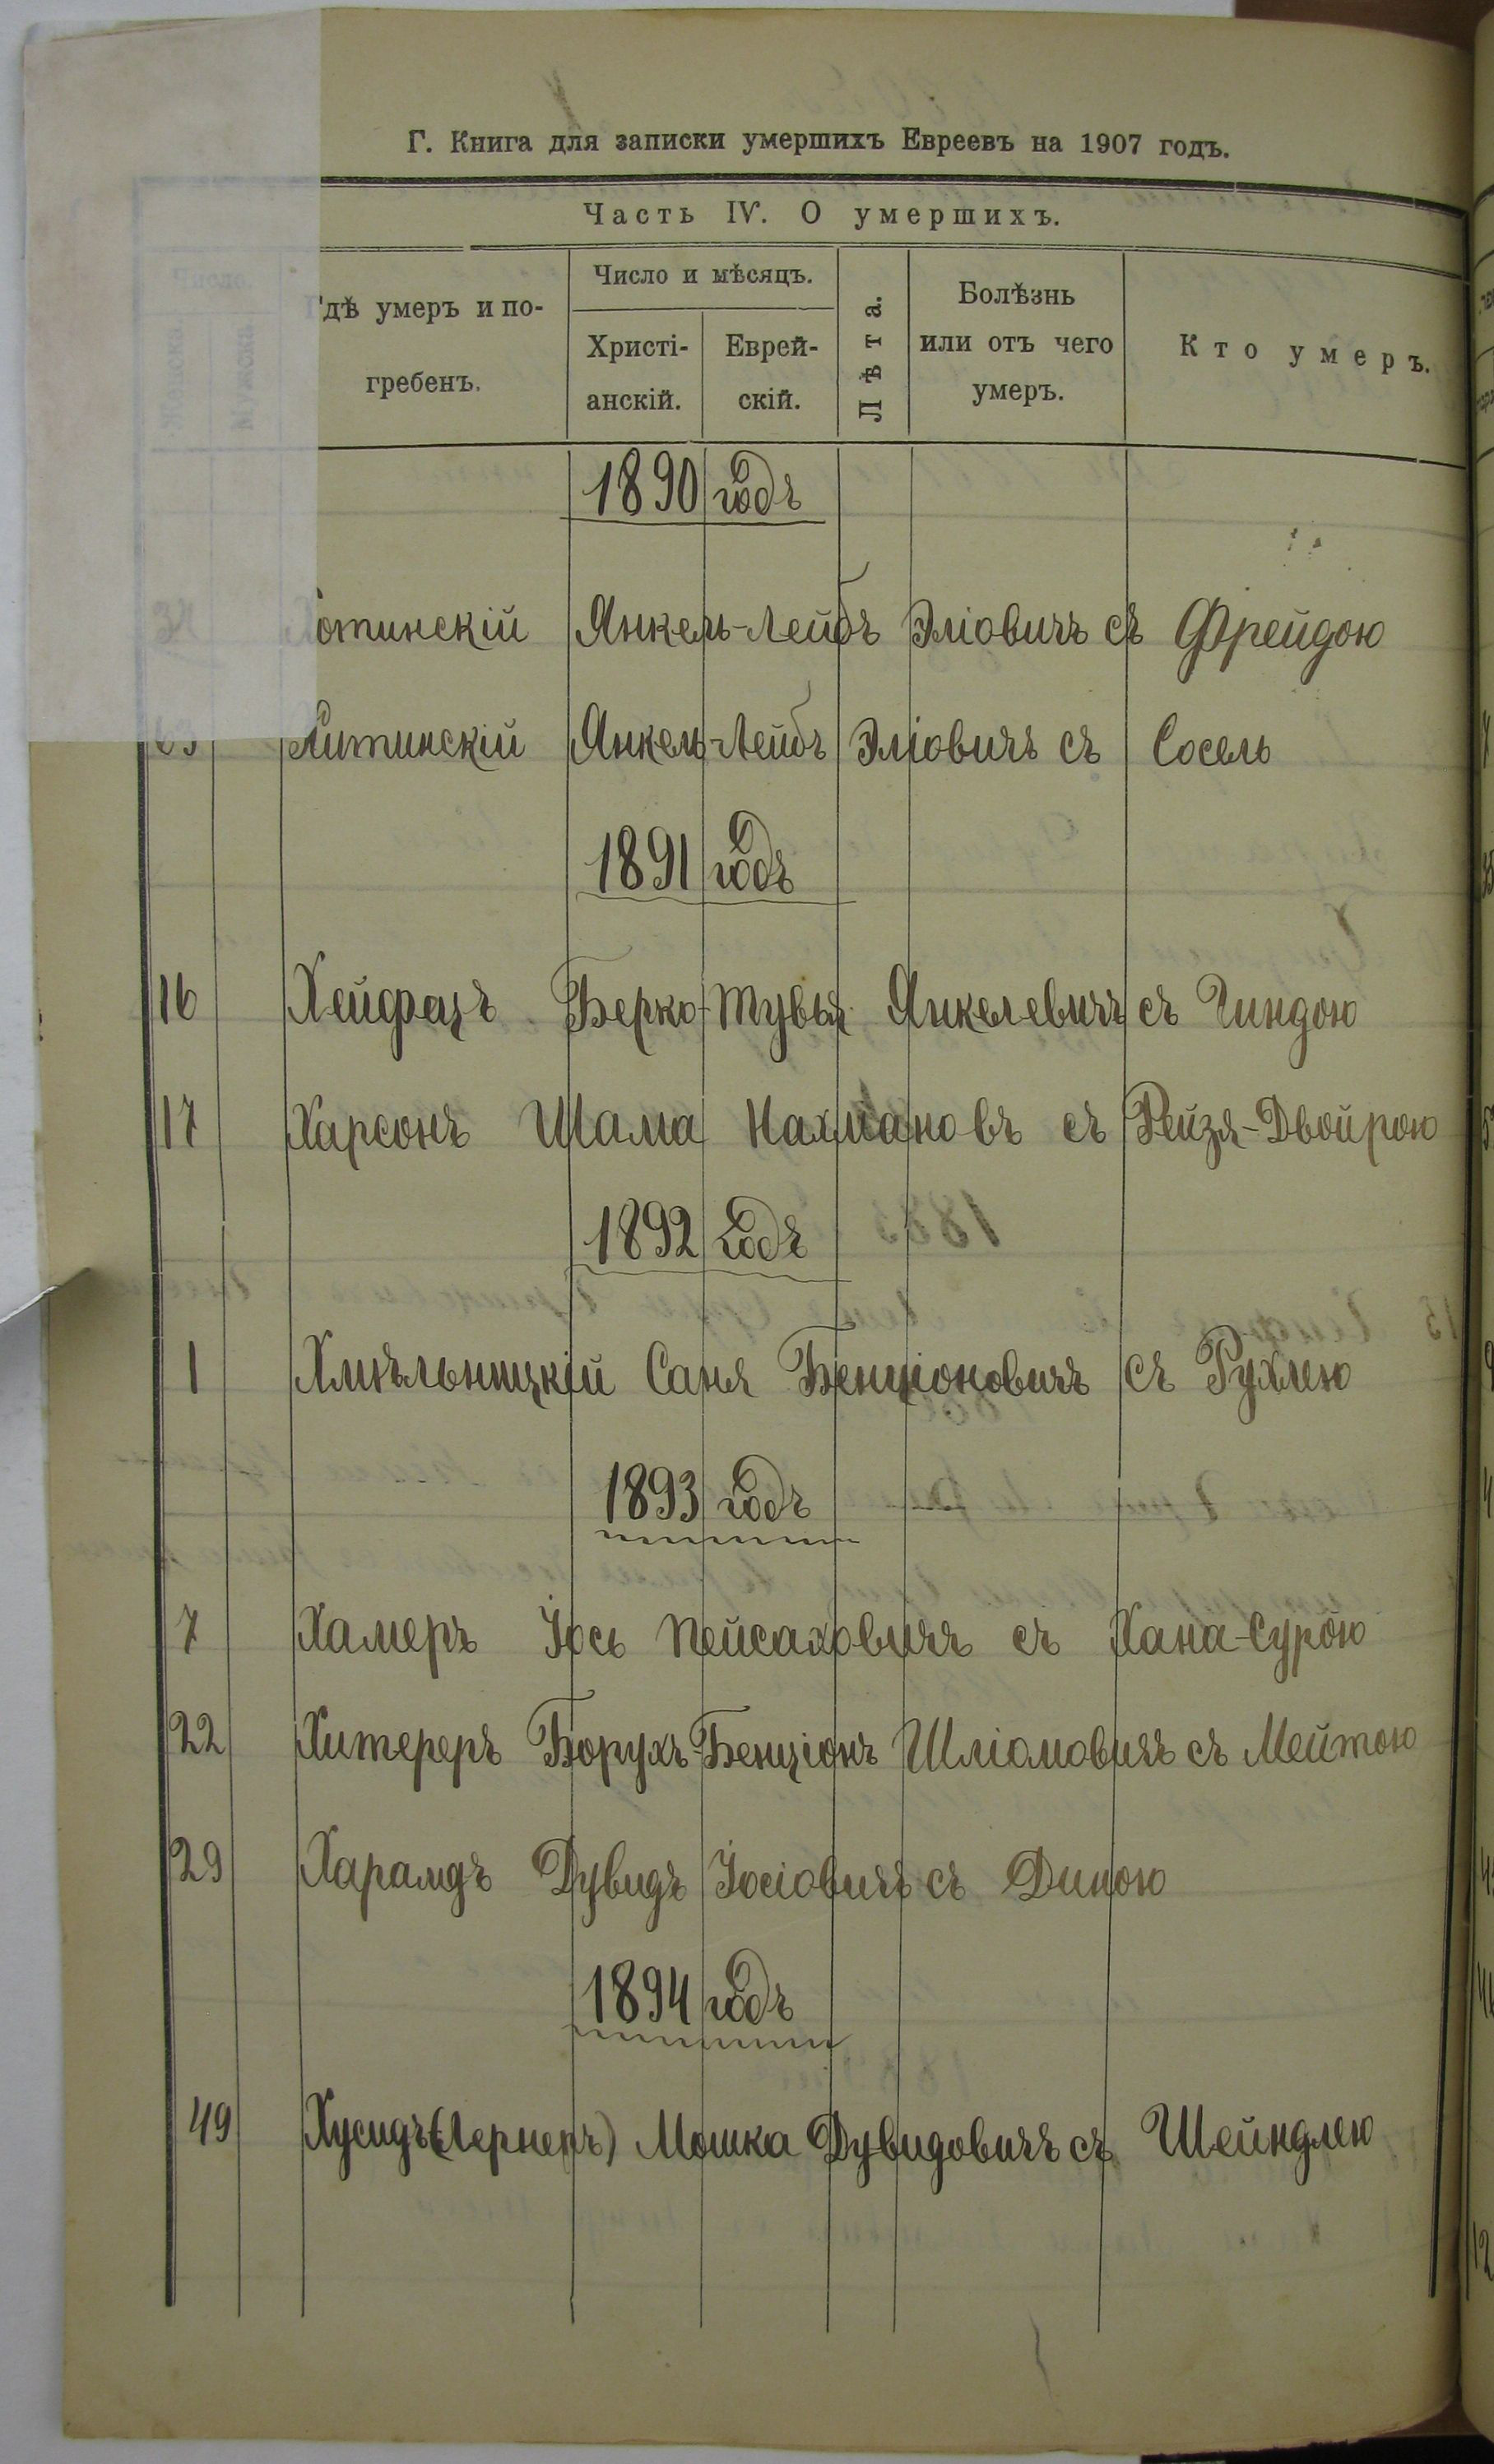 Г. Книга для записки умершихъ Евреевъ на 1907 годъ.
Часть IV. О умершихъ.
Число.
Женска.
Мужска.
Гдѣ умеръ и по-
гребенъ.
Число и мѣсяцъ.
Христі-
анскій.
Еврей-
скій.
Лѣта.
Болѣзнь
или отъ чего
умеръ.
Кто умеръ.
1890 годъ
Хотинскій Янкель-Лейбъ Эліовичъ съ Фрейдою
Хитинскій Янкель-Лейбъ Эліовичъ съ Сосель
1891 годъ
16 Хейфецъ Берко-Тувья Янкелевичъ съ Гиндою
17 Харсонъ Шама Нахмановъ съ Рейзя-Двойрою
1892 годъ
1 Хмѣльницкій Саня Бенціоновичъ съ Рухлею
1893 годъ
7 Хамеръ Іось Пейсаховичъ съ Хана-Сурою
22 Хитереръ Борухъ-Бенціонъ Шліомовичъ съ Мейтою
29 Харамдъ Дувидъ Іосіовичъ съ Диною
1894 годъ
49 Хусидъ (Лернеръ) Мошка Дувидовичъ съ Шейндлею